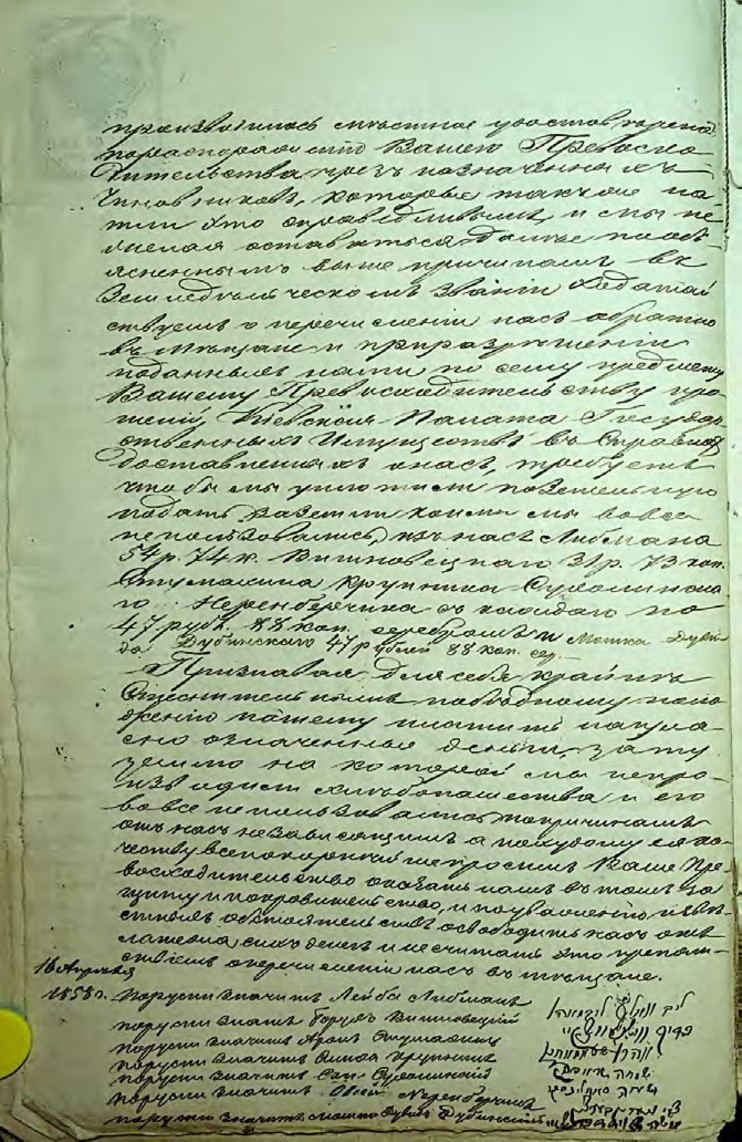 производилось местное удостоверение
по распоряжению Вашего Превосхо
дительства чрез назначенныхъ
Чиновниковъ, которые также на
шли это справедливымъ, и мы не
желая оставаться далее по объ
ясненнымъ выше причинамъ въ
Земледельческомъ званіи ходатай
ствуемъ о перечисленіи насъ обратно
въ мещане и при разрешеніи
поданныхъ нами по сему предмету
Вашему Превосходительству про
шеній, Кіевская Палата Государ
ственныхъ Имуществъ въ Справкахъ
доставленныхъ о насъ, требуетъ
чтобы мы уплотили поземельную
подать за земли коими мы вовсе
не пользовались, изъ насъ Либмана
54 р. 74 к. Вишновецкаго 31 р. 73 коп.
Штумахина Крупника Сухолинска
го Неренберчика съ каждаго по
47 рубл. 88 коп. серебромъ и Мошка Дуви
да Дубинскаго 47 рублей 88 коп. сер.
Признавая для себя крайнъ
Стеснительнымъ по бедному поло
женію нашему платить напра
сно означенные деньги, за ту
землю на которой мы непро
изводили хлебопашества и его
вовсе не пользовались по причинамъ
отъ насъ независящимъ а посему
всепокорнейше просимъ Ваше Пре
восходительство оказать намъ въ томъ за
щиту и покровительство, и по уваженію изве
стныхъ обстоятельствъ освободить насъ отъ
платежа сихъ денегъ и не считать это препят
ствіемъ о перечисленіи насъ въ мещане.
16 Апреля
1858 г. по русски значитъ Лейба Либманъ
по русски значитъ Борухъ Вишновецкій
по русски значитъ Аронъ Штумахинъ
по русски значитъ Крупникъ
по русски значитъ Сухолинскій
по русски значитъ Неренберчикъ
по русски значитъ Мошко Дувидъ Дубинскій